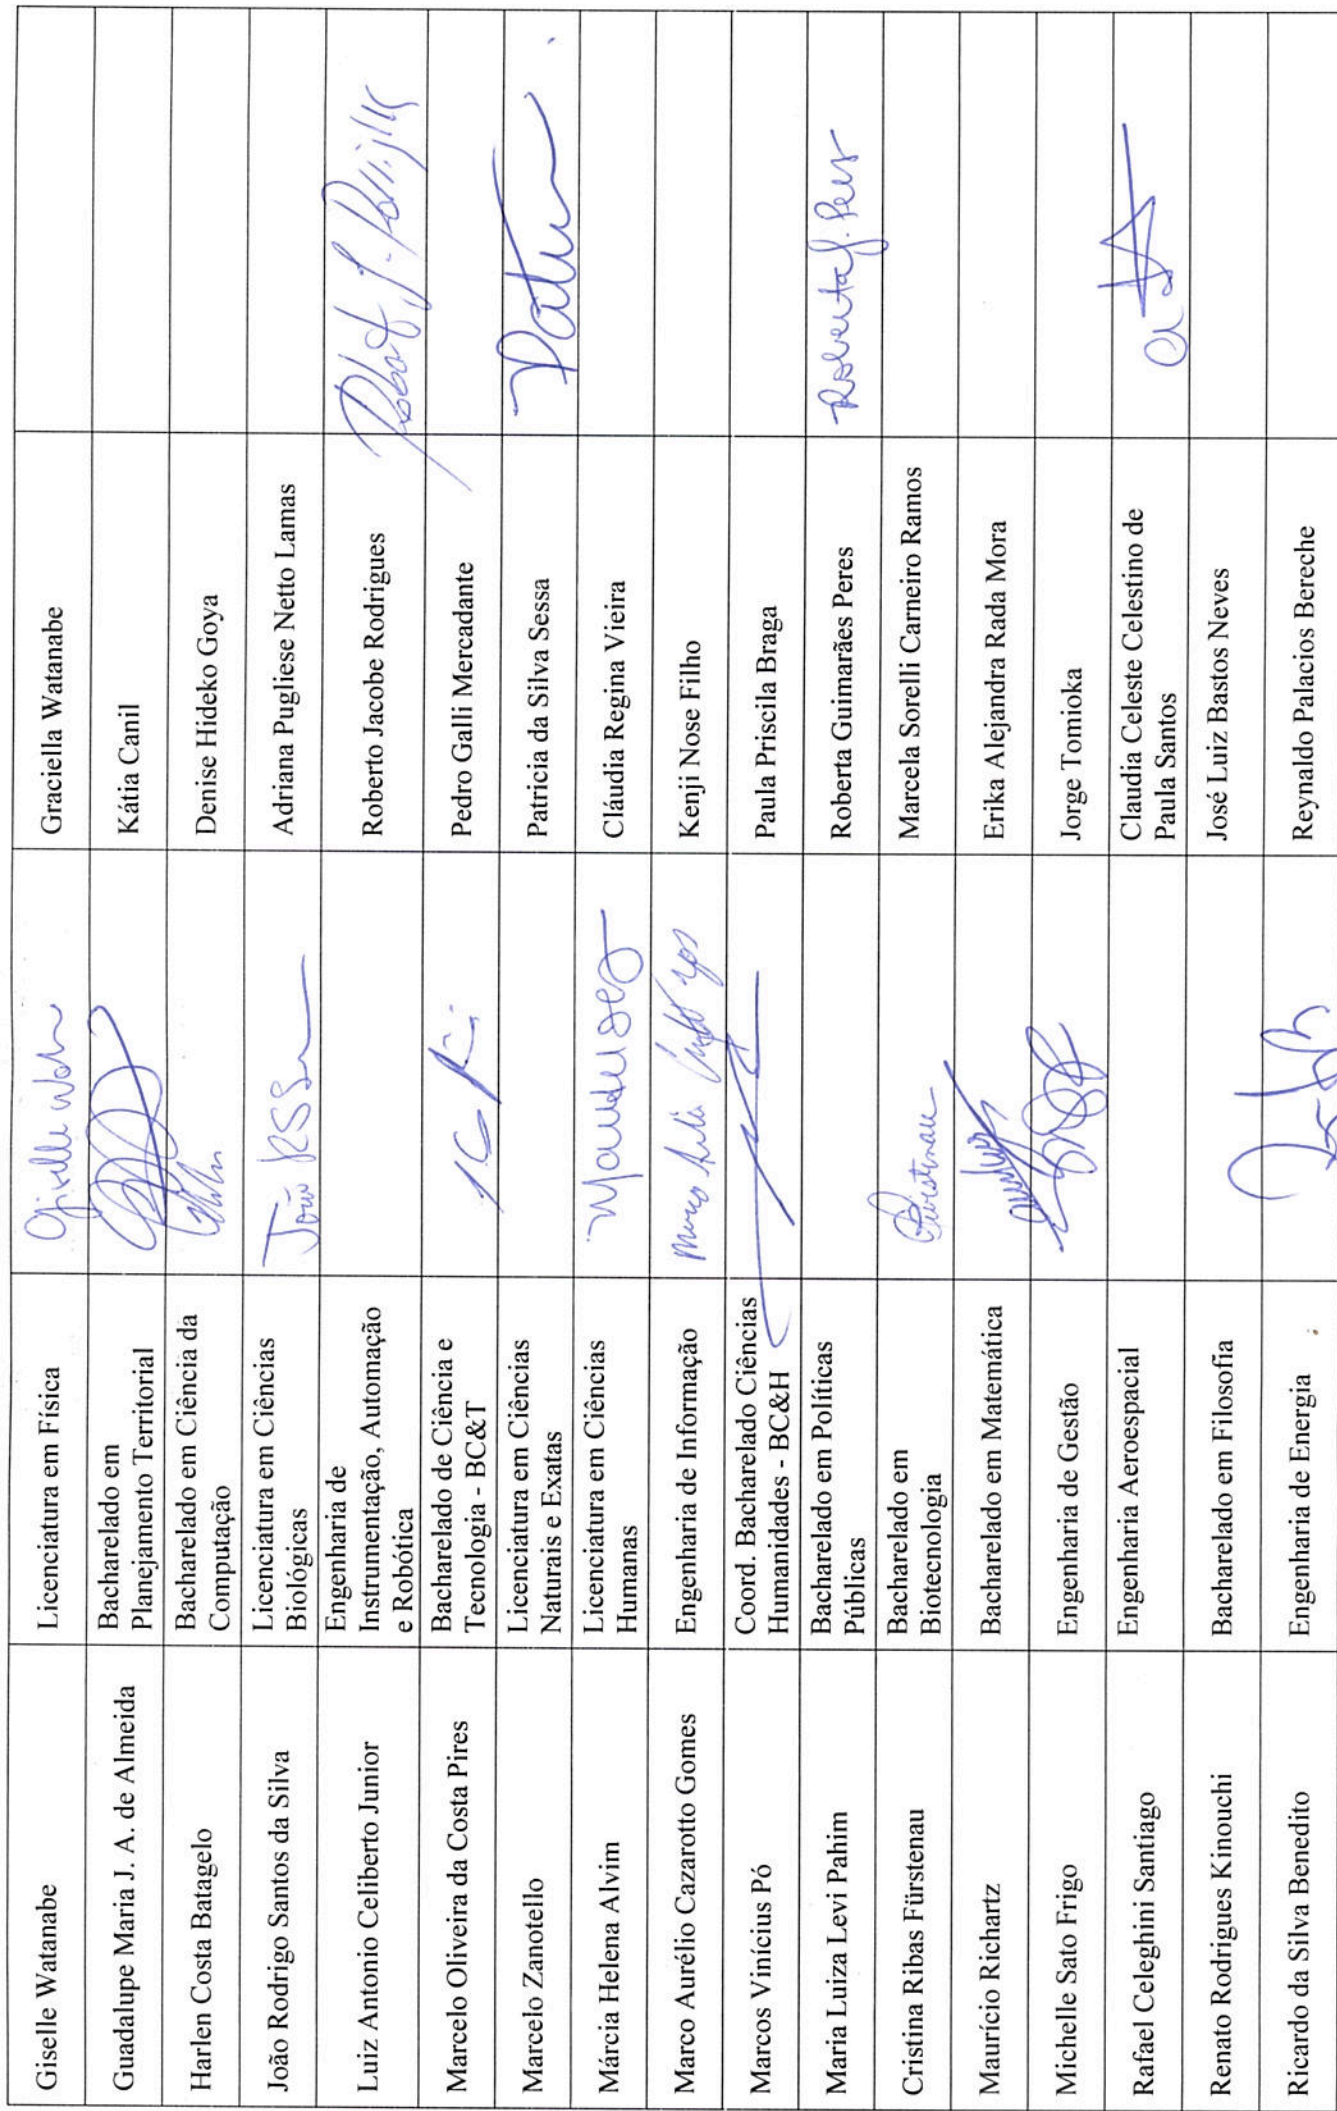 Giselle Watanabe
Licenciatura em Física
Giselle Watn
Graciella Watanabe
Guadalupe Maria J. A. de Almeida
Bacharelado em
Planejamento Territorial
Kátia Canil
Harlen Costa Batagelo
Bacharelado em Ciência da
Computação
Denise Hideko Goya
João Rodrigo Santos da Silva
Licenciatura em Ciências
Biológicas
João RSS
Adriana Pugliese Netto Lamas
Luiz Antonio Celiberto Junior
Engenharia de
Instrumentação, Automação
e Robótica
Roberto Jacobe Rodrigues
Marcelo Oliveira da Costa Pires
Bacharelado de Ciência e
Tecnologia - BC&T
Pedro Galli Mercadante
Marcelo Zanotello
Licenciatura em Ciências
Naturais e Exatas
Patricia da Silva Sessa
Márcia Helena Alvim
Licenciatura em Ciências
Humanas
Cláudia Regina Vieira
Marco Aurélio Cazarotto Gomes
Engenharia de Informação
Kenji Nose Filho
Marcos Vinícius Pó
Coord. Bacharelado Ciências
Humanidades - BC&H
Paula Priscila Braga
Maria Luiza Levi Pahim
Bacharelado em Políticas
Públicas
Roberta Guimarães Peres
Roberta G. Peres
Cristina Ribas Fürstenau
Bacharelado em
Biotecnologia
Marcela Sorelli Carneiro Ramos
Maurício Richartz
Bacharelado em Matemática
Erika Alejandra Rada Mora
Michelle Sato Frigo
Engenharia de Gestão
Jorge Tomioka
Rafael Celeghini Santiago
Engenharia Aeroespacial
Claudia Celeste Celestino de
Paula Santos
Renato Rodrigues Kinouchi
Bacharelado em Filosofia
José Luiz Bastos Neves
Ricardo da Silva Benedito
Engenharia de Energia
Reynaldo Palacios Bereche